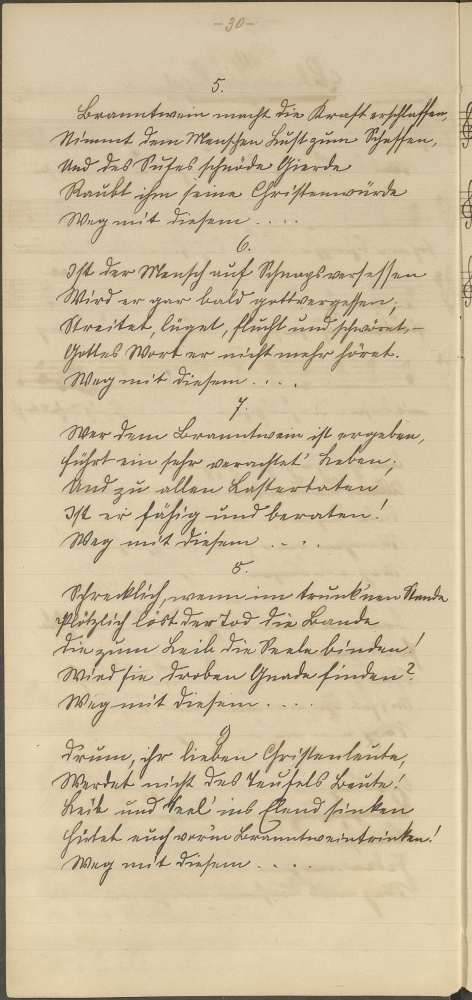 -30-
5.
Branntwein macht die Kraft erschlaffen,
Nimmt dem Menschen Lust zum Schaffen,
Und des Sufes schnöde Gierde
Raubt ihm seine Christenwürde
Weg mit diesem . . . .
6.
Ist der Mensch auf Schnaps versessen
Wird er gar bald gottvergessen;
Streitet, lüget, flucht und schwöret, –
Gottes Wort er nicht mehr höret.
Weg mit diesem . . . .
7.
Wer dem Branntwein ist ergeben,
Führt ein sehr verachtet' Leben;
Und zu allen Lastertaten
Ist er fähig und beraten!
Weg mit diesem . . . .
8.
Schrecklich, wenn im trunk'nen Stande
Plötzlich löst der Tod die Bande
Die zum Leib die Seele binden!
Wird sie droben Gnade finden?
Weg mit diesem . . . .
9
Drum, ihr lieben Christenleute,
Werdet nicht des Teufels Beute!
Leib und Seel' ins Elend sinken
Hütet euch vor'm Branntweintrinken!
Weg mit diesem . . . .